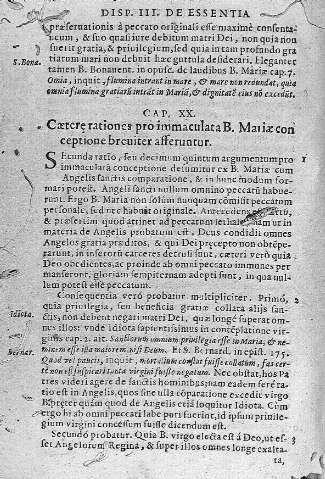 DISP. III. DE ESSENTIA
præseruationis à peccato originali esse maximè consenta-
neum, & suo quasi iure debitum matri Dei, non quia non
fuerit gratia, & priuilegium, sed quia in tam profundo gra-
tiarum mari non debuit hæc guttula desiderari. Eleganter
S. Bona.
tamen B. Bonauent. in opusc. de laudibus B. Mariæ cap. 7.
Omia, inquit, flumina intrant in mare, & mare non redundat, quia
omnia flumina gratiarū intrāt in Maria, & dignitatē eius nō excedūt.
CAP. XX.
Cæteræ rationes pro immaculata B. Mariæ con
ceptione breuiter afferuntur.
SEcunda ratio, seu decimum quintum argumentum pro 1
immaculata conceptione desumitur ex B. Mariæ cum
Angelis sanctis comparatione, & in hunc modum for-
mari potest. Angeli sancti nullum omnino peccatū habue-
runt. Ergo B. Maria non solùm nunquam cōmisit peccatum
personale, sed nec habuit originale. Antecedens
& præsertim quod attinet ad peccatum ut in
materia de Angelis probatum est, Deus condidit omnes
Angelos gratia præditos, & qui Dei præcepto non obtempe-
rarunt, in inferorū carceres detrusi sunt, cæteri verò quia
Deo obedientes, ac proinde ab omni peccato immunes per
manserunt, gloriam sempiternam adepti sunt, in qua nul-
lum potest esse peccatum.
Consequentia verò probatur multipliciter. Primò, 2
quia priuilegia, seu beneficia gratiæ collata alijs san-
Idiota.
ctis, non debent negari matri Dei, quæ longè superat om-
nes illos: vnde Idiota sapientissimus in contēplatione vir-
ginis cap. 2. ait. Sanctorum omnium priuilegia esse in Maria, & ne-
minem esse illa maiorem nisi Deum. Et S. Bernard. in epist. 175.
Bernar.
Quod vel paucis, inquit, mortalium constat fuisse collatum, fas cer-
tè non est suspicari tantæ virgini fuisse negatum. Nec obstat, hos Pa
tres videri agere de sanctis hominibus; nam eadem ferè ra-
tio est in Angelis, quos sine vlla cōparatione excedit virgo
& præter quàm quod de Angelis etiā loquitur Idiota. Cùm
ergo hi ab omni peccati labe puri fuerint, id ipsum priuile-
gium virgini concessum fuisse dicendum est.
Secundò probatur. Quia B. virgo electa est à Deo, ut es- 3
set Angelorum Regina, & super illos omnes longè exalta
ta,